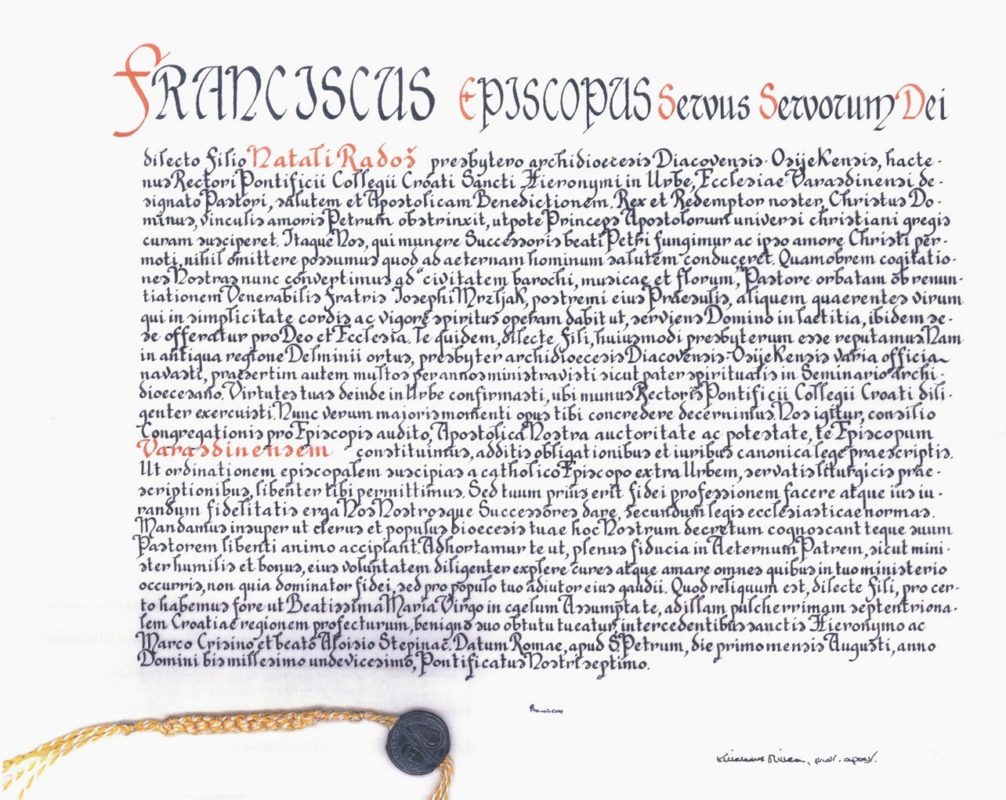 Franciscus Episcopus Servus Servorum Dei
dilecto filio Natali Radoš presbytero archidioecesis Diacovensis-Osijekensis, hacte-
nus Rectori Pontificii Collegii Croati Sancti Hieronymi in Urbe, Ecclesiae Varasdinensi de-
signato Pastori, salutem et Apostolicam Benedictionem. Rex et Redemptor noster, Christus Do-
minus, vinculis amoris Petrum obstrinxit, utpote Princeps Apostolorum universi christiani gregis
curam susciperet. Itaque Nos, qui munere Successoris beati Petri fungimur ac ipso amore Christi per-
moti, nihil omittere possumus quod ad aeternam hominum salutem conduceret. Quamobrem cogitatio-
nes Nostras nunc convertimus ad "civitatem barochi, musicae et florum", Pastore orbatam ob renun-
tiationem Venerabilis Fratris Iosephi Mrzljak, postremi eius Praesulis, aliquem quaerentes virum
qui in simplicitate cordis ac vigore spiritus operam dabit ut, serviens Domino in laetitia, ibidem se-
se offeratur pro Deo et Ecclesia. Te quidem, dilecte Fili, huiusmodi presbyterum esse reputamus. Nam
in antiqua regione Delminii ortus, presbyter archidioecesis Diacovensis-Osijekensis varia officia
navasti, praesertim autem multos per annos ministravisti sicut pater spiritualis in Seminario archi-
dioecesano. Virtutes tuas deinde in Urbe confirmasti, ubi munus Rectoris Pontificii Collegii Croati dili-
genter exercuisti. Nunc verum majoris momenti opus tibi concredere decernimus. Nos igitur, consilio
Congregationis pro Episcopis audito, Apostolica Nostra auctoritate ac potestate, te Episcopum
Varasdinensem constituimus, additis obligationibus et iuribus canonica lege praescriptis.
Ut ordinationem episcopalem suscipias a catholico Episcopo extra Urbem, servatis liturgicis prae-
scriptionibus, libenter tibi permittimus. Sed tuum prius erit fidei professionem facere atque ius iu-
randum fidelitatis erga Nos Nostrosque Successores dare, secundum legis ecclesiasticae normas.
Mandamus insuper ut clerus et populus dioecesis tuae hoc Nostrum decretum cognoscant teque suum
Pastorem libenti animo accipiant. Adhortamur te ut, plenus fiducia in Aeternum Patrem, sicut mini-
ster humilis et bonus, eius voluntatem diligenter explere cures atque amare omnes quibus in tuo ministerio
occurris, non quia dominator fidei, sed pro populo tuo adiutor eius gaudii. Quod reliquum est, dilecte Fili, pro cer-
to habemus fore ut Beatissima Maria Virgo in caelum Assumptate, ad illam pulcherrimam septentriona-
lem Croatiae regionem profecturum, benigno suo obtutu tueatur, intercedentibus sanctis Hieronymo ac
Marco Crisino et beato Aloisio Stepinac. Datum Romae, apud S. Petrum, die primo mensis Augusti, anno
Domini bis millesimo undevicesimo, Pontificatus Nostri septimo.
Franciscus